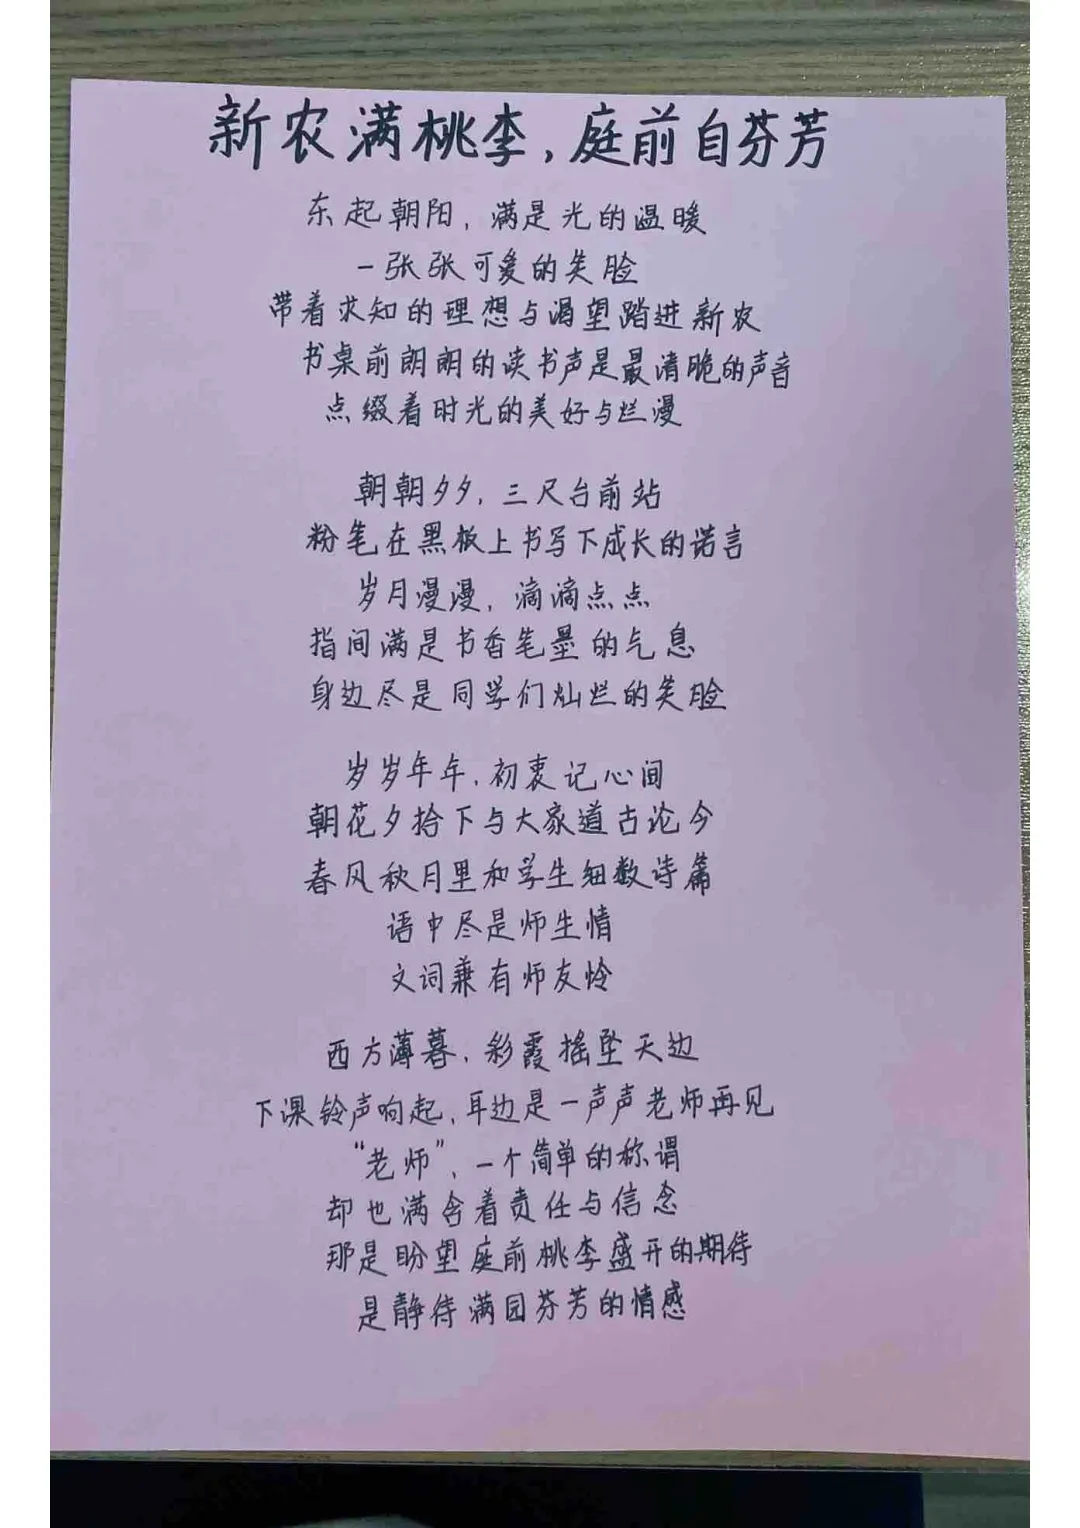 新农满桃李,庭前自芬芳
东起朝阳,满是光的温暖
一张张可爱的笑脸
带着求知的理想与渴望踏进新农
书桌前朗朗的读书声是最清脆的声音
点缀着时光的美好与烂漫
朝朝夕夕,三尺台前站
粉笔在黑板上书写下成长的诺言
岁月漫漫,滴滴点点
指间满是书香笔墨的气息
身边尽是同学们灿烂的笑脸
岁岁年年,初衷记心间
朝花夕拾下与大家道古论今
春风秋月里和学生细数诗篇
语中尽是师生情
文词兼有师友怜
西方薄暮,彩霞摇坠天边
下课铃声响起,耳边是一声声老师再见
“老师”、一个简单的称谓
却也满含着责任与信念
那是盼望庭前桃李盛开的期待
是静待满园芬芳的情感